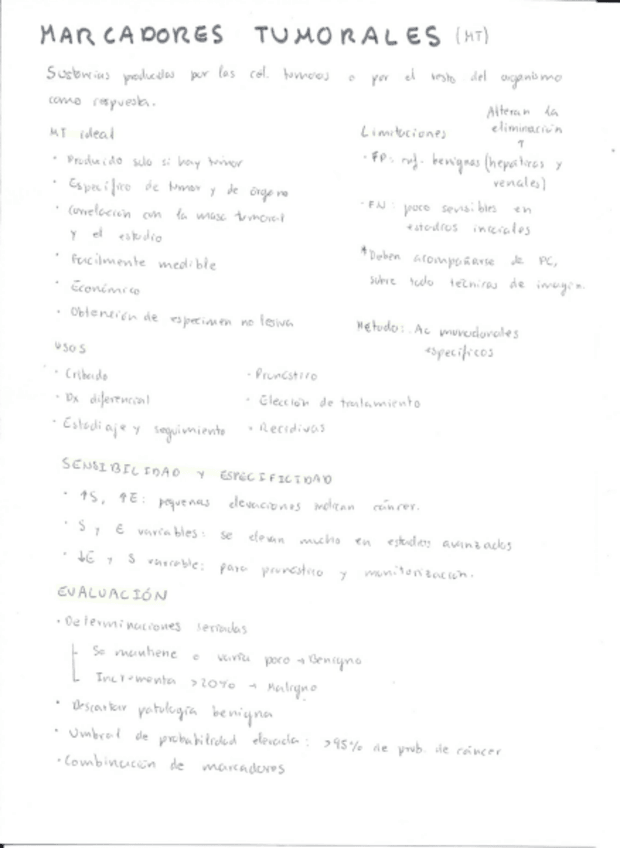 MARCADORES TUMORALES (MT)
Sustancias producidas por las cél. tumores o por el resto del organismo
como respuesta.
MT ideal
· Producido solo si hay tumor
· Específico de tumor y de órgano
· Correlación con la masa tumoral
y el estadio
· Fácilmente medible
· Económico
· Obtención de especimen no lesiva
Alteran la
eliminación
↑
Limitaciones
· FP: enf. benignas (hepáticas y
renales)
· FN: poco sensibles en
estadios iniciales
* Deben acompañarse de PC,
sobre todo técnicas de imagen.
Método: Ac monoclonales
específicos
USOS
· Cribado
· Dx diferencial
· Estadiaje y seguimiento
· Pronóstico
· Elección de tratamiento
· Recidivas
SENSIBILIDAD Y ESPECIFICIDAD
· ↑S, ↑E: pequeñas elevaciones indican cáncer.
· S y E variables: se elevan mucho en estadios avanzados
· ↓E y S variable: para pronóstico y monitorización.
EVALUACIÓN
· Determinaciones seriadas
Se mantiene o varía poco → Benigno
Incrementa >20% → Maligno
· Descartar patología benigna
· Umbral de probabilidad elevada: >95% de prob. de cáncer
· Combinación de marcadores